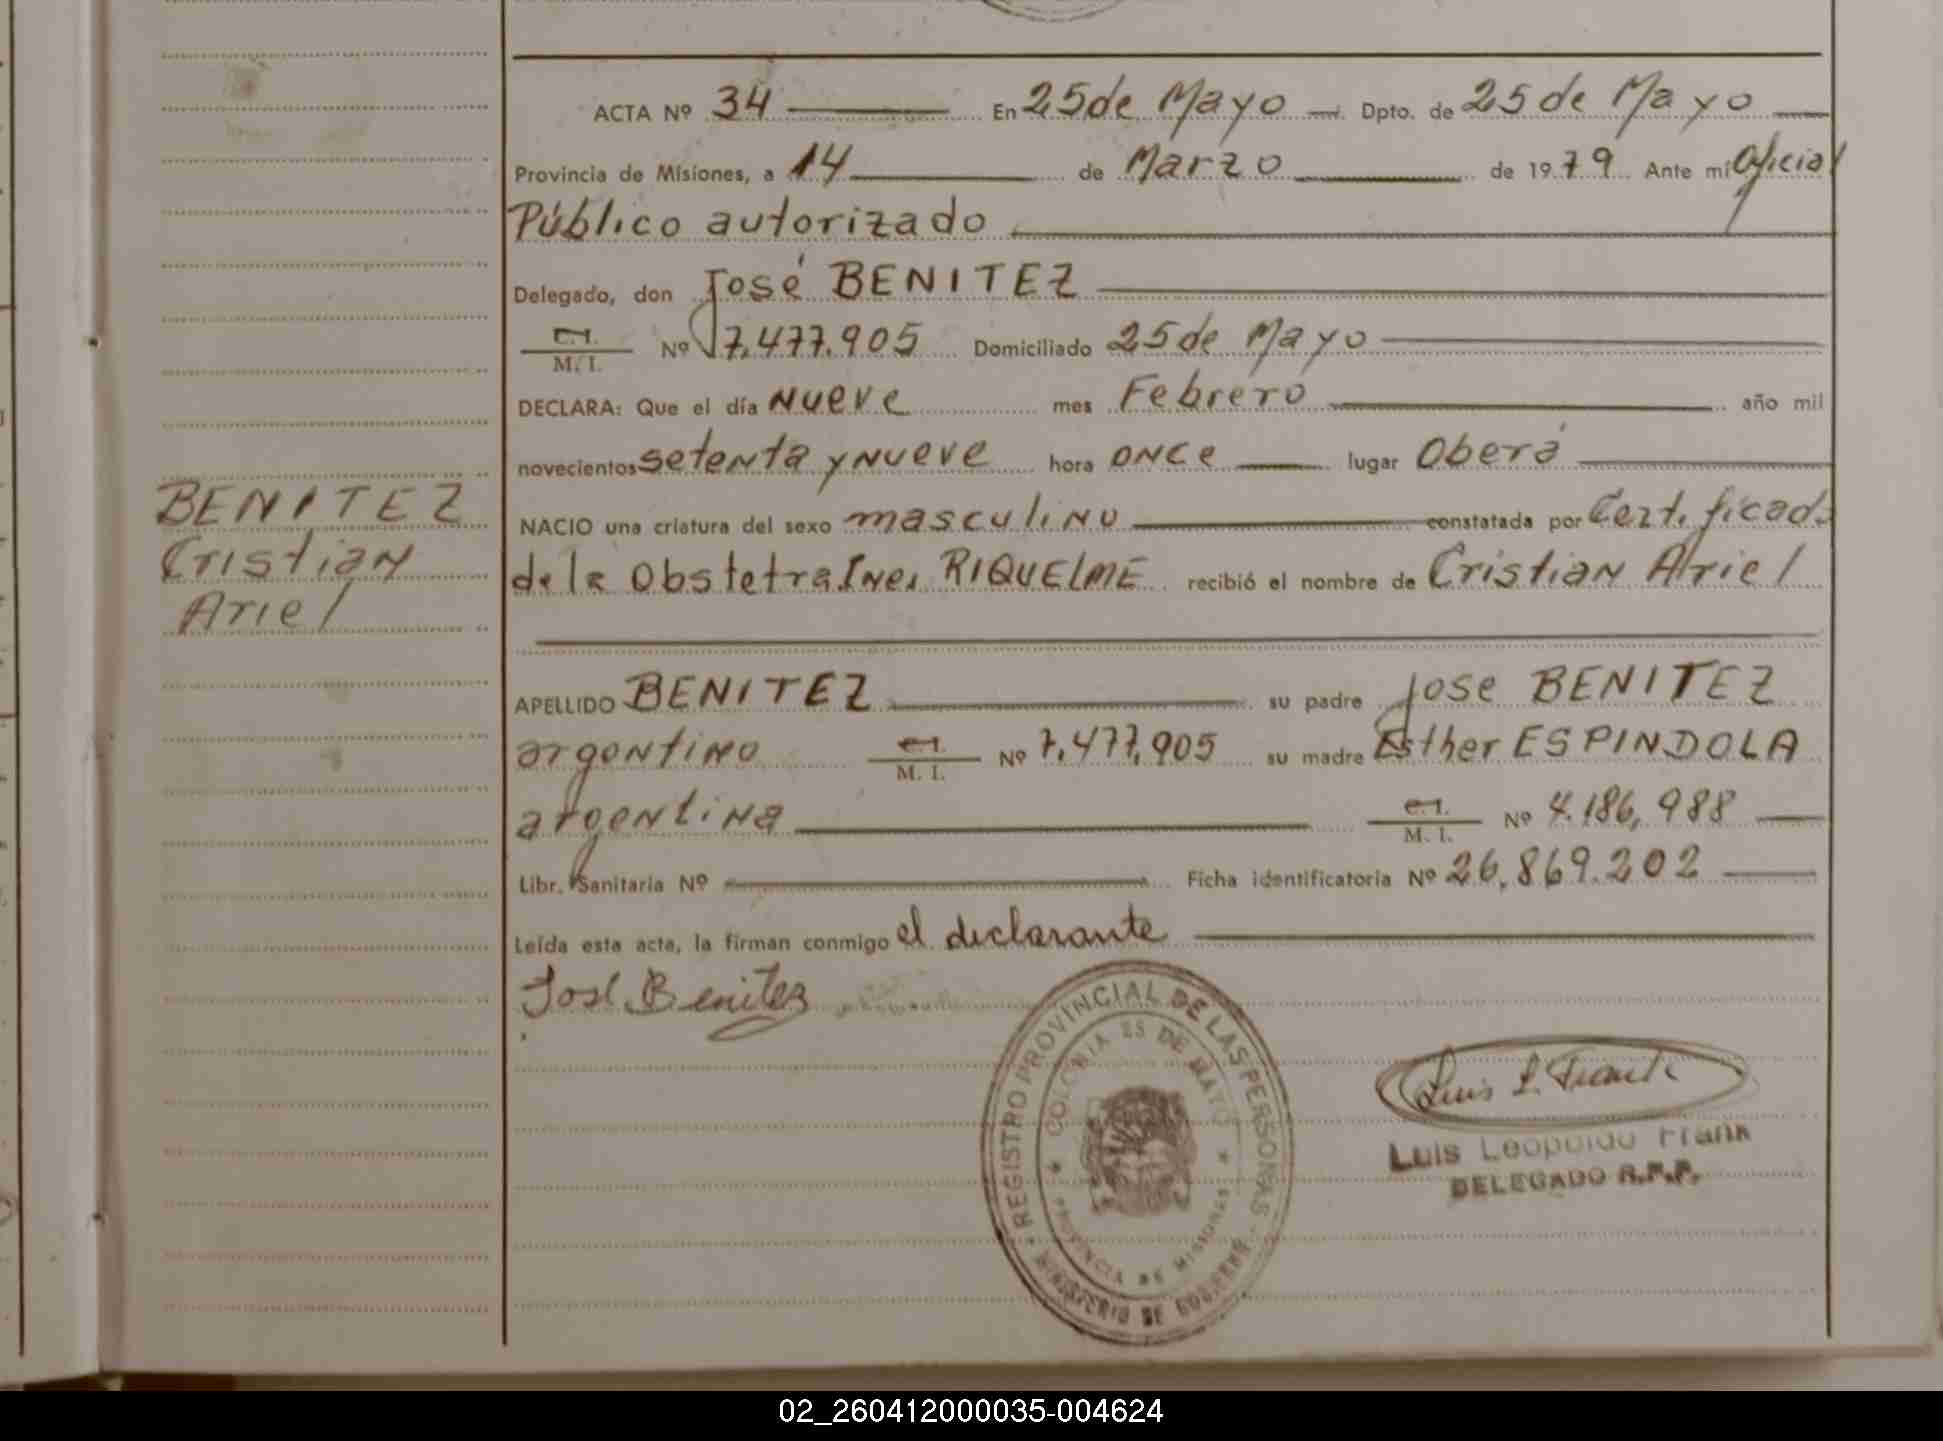 ACTA Nº 34 En 25 de Mayo Dpto. de 25 de Mayo
Provincia de Misiones, a 14 de Marzo de 1979 Ante mi Oficial
Público autorizado
Delegado, don José BENITEZ
C.I.
M. I. Nº 7.477.905 Domiciliado 25 de Mayo
DECLARA: Que el día Nueve mes Febrero año mil
novecientos setenta y Nueve hora ONCe lugar Oberá
NACIO una criatura del sexo masculino constatada por Certificado
BENITEZ
Cristian
Ariel
de la Obstetra Ines RIQUELME recibió el nombre de Cristian Ariel
APELLIDO BENITEZ su padre Jose BENITEZ
argentino C.I.
M. I. Nº 7.477.905 su madre Esther ESPINDOLA
argentina C.I.
M. I. Nº 4.186,988
Libr. Sanitaria Nº Ficha identificatoria Nº 26.869.202
Leída esta acta, la firman conmigo el declarante
José Benitez
REGISTRO PROVINCIAL DE LAS PERSONAS
COLONIA 25 DE MAYO
PROVINCIA DE MISIONES
MINISTERIO DE GOBIERNO
Luis L. Frank
Luis Leopoldo Frank
DELEGADO R.P.P.
02_260412000035-004624